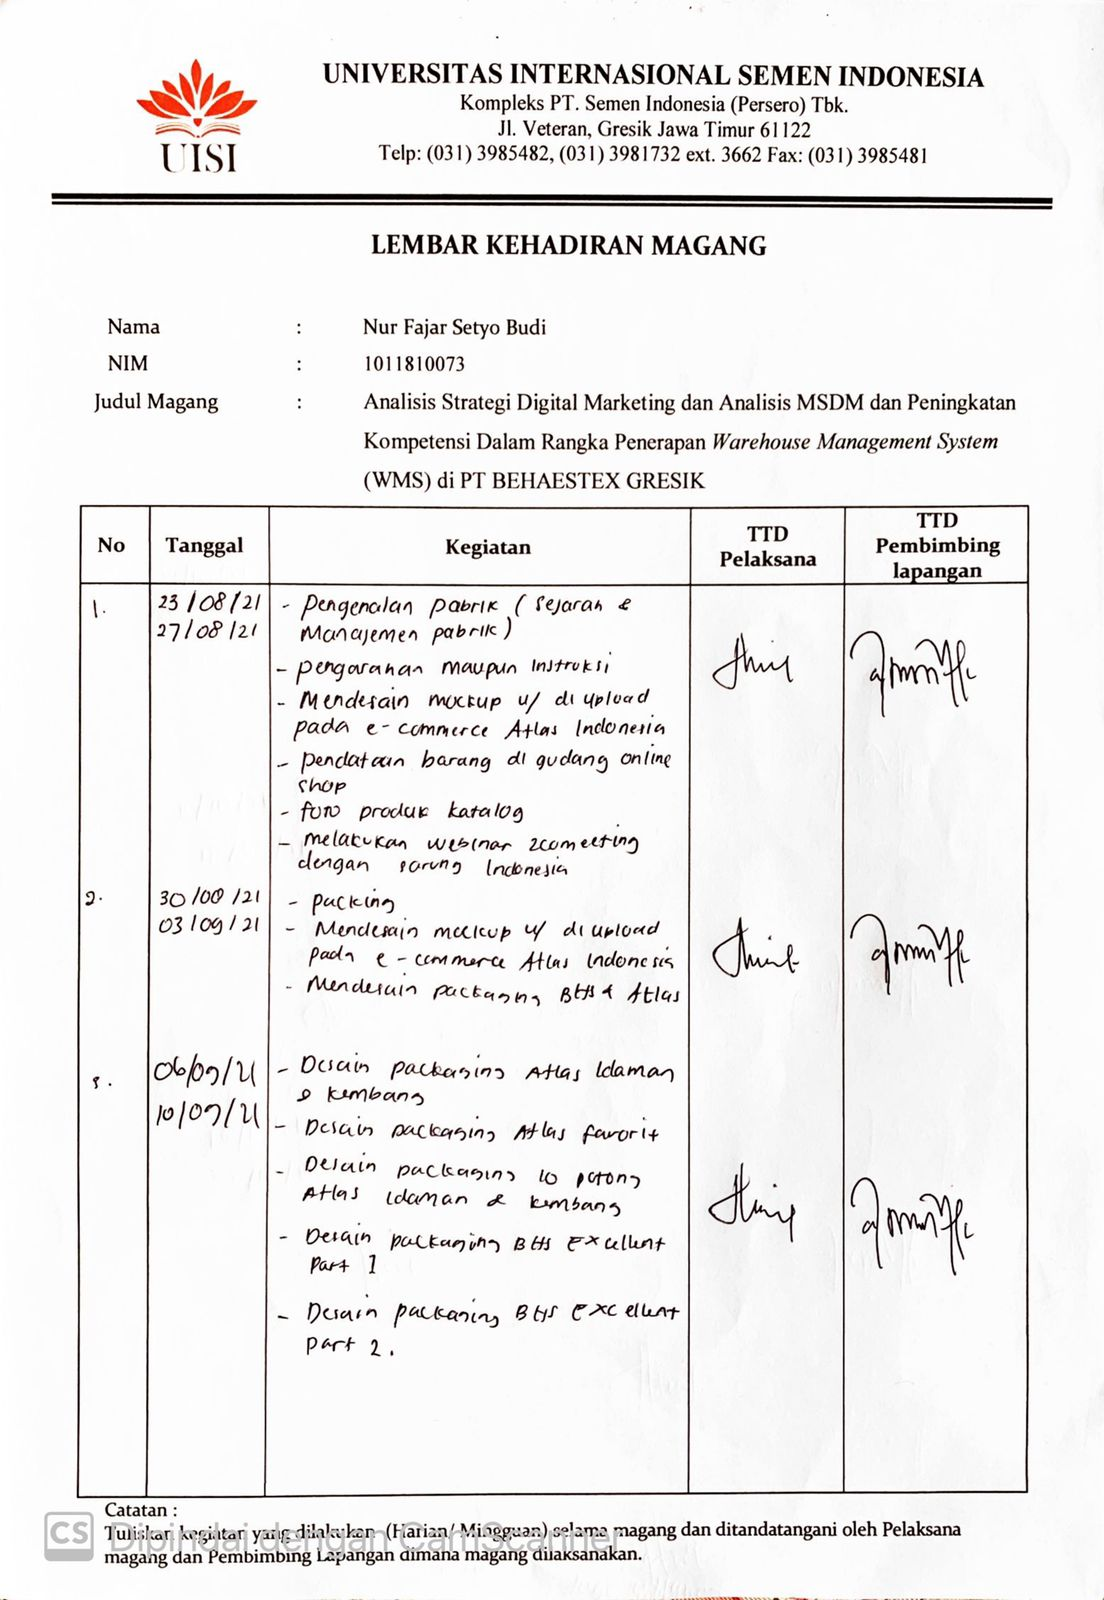 UISI
UNIVERSITAS INTERNASIONAL SEMEN INDONESIA
Kompleks PT. Semen Indonesia (Persero) Tbk.
Jl. Veteran, Gresik Jawa Timur 61122
Telp: (031) 3985482, (031) 3981732 ext. 3662 Fax: (031) 3985481
LEMBAR KEHADIRAN MAGANG
Nama : Nur Fajar Setyo Budi
NIM : 1011810073
Judul Magang : Analisis Strategi Digital Marketing dan Analisis MSDM dan Peningkatan
Kompetensi Dalam Rangka Penerapan Warehouse Management System
(WMS) di PT BEHAESTEX GRESIK
No Tanggal Kegiatan TTD Pelaksana TTD Pembimbing lapangan
1. 23/08/21 - Pengenalan pabrik (Sejarah &
27/08/21 Manajemen pabrik)
- pengarahan maupun Instruksi
- Mendesain mockup u/ di upload
pada e-commerce Atlas Indonesia
- pendataan barang di gudang online
shop
- foto produk katalog
- melakukan webinar zoomeeting
dengan sarung Indonesia
2. 30/08/21 - packing
03/09/21 - Mendesain mockup u/ di upload
pada e-commerce Atlas Indonesia
- Mendesain packaging BHS & Atlas
3. 06/09/21 - Desain packaging Atlas Idaman
& kembang
10/09/21 - Desain packaging Atlas favorit
- Desain packaging 10 potong
Atlas Idaman & kembang
- Desain packaging BHS Excellent
Part 1
- Desain packaging BHS Excellent
part 2.
Catatan :
Tuliskan kegiatan yang dilakukan (Harian/ Mingguan) selama magang dan ditandatangani oleh Pelaksana
magang dan Pembimbing Lapangan dimana magang dilaksanakan.
CS Dipindai dengan CamScanner